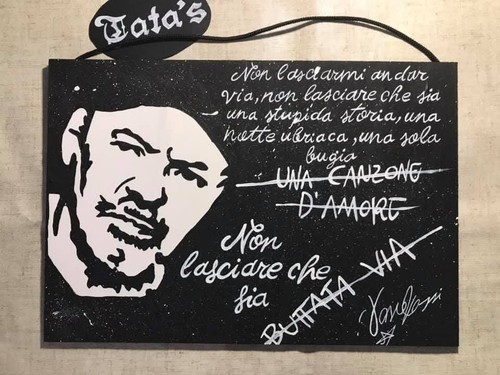 Tata's
Non lasciarmi andar
via, non lasciare che sia
una stupida storia, una
notte ubriaca, una sola
bugia
UNA CANZONE
D'AMORE
Non
lasciare che
sia
BUTTATA VIA